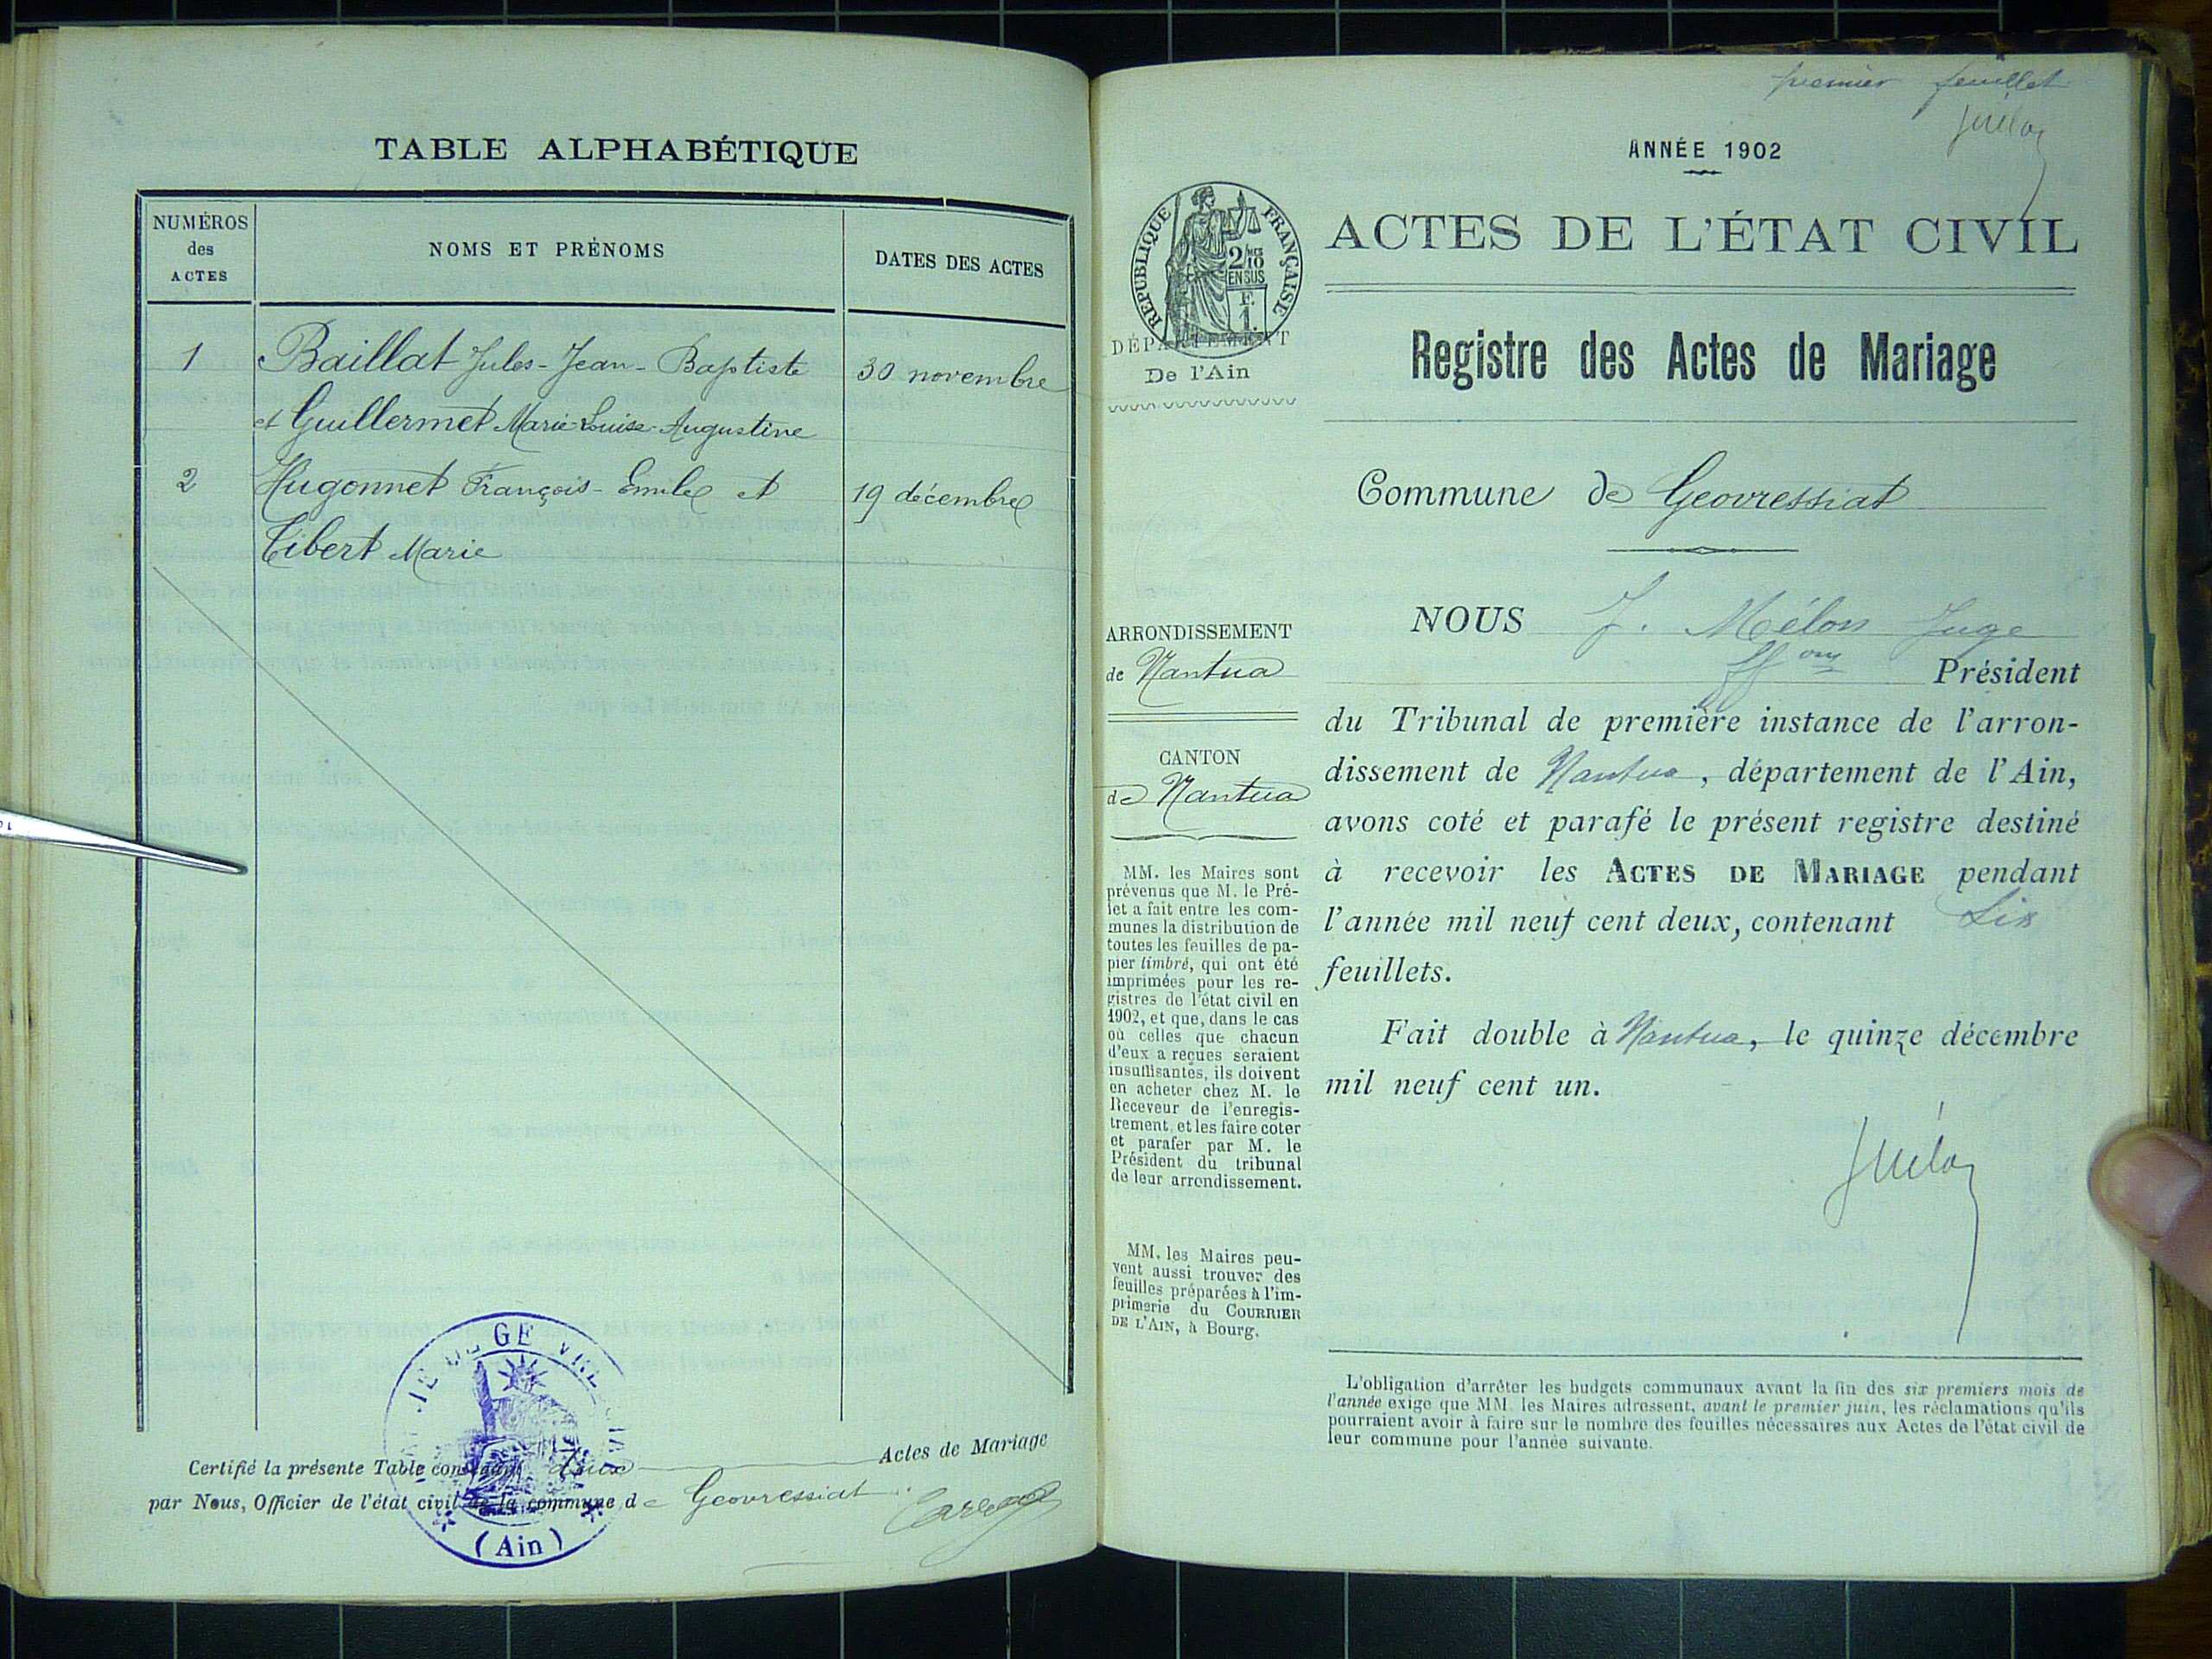 TABLE ALPHABÉTIQUE
NUMÉROS
des
ACTES
NOMS ET PRÉNOMS
DATES DES ACTES
1
Baillat Jules-Jean-Baptiste
30 novembre
et Guillermet Marie-Louise-Augustine
2
Hugonnet François-Emile et
19 décembre
Tibert Marie
Certifié la présente Table contenant deux Actes de Mariage
par Nous, Officier de l'état civil de la commune de Geovressiat.
(Ain)
premier feuillet
ANNÉE 1902
ACTES DE L'ÉTAT CIVIL
RÉPUBLIQUE FRANÇAISE
2/10
EN SUS
F.
1.
DÉPARTEMENT
De l'Ain
Registre des Actes de Mariage
Commune de Geovressiat
ARRONDISSEMENT
de Nantua
CANTON
de Nantua
MM. les Maires sont
prévenus que M. le Pré-
fet a fait entre les com-
munes la distribution de
toutes les feuilles de pa-
pier timbré, qui ont été
imprimées pour les re-
gistres de l'état civil en
1902, et que, dans le cas
où celles que chacun
d'eux a reçues seraient
insuffisantes, ils doivent
en acheter chez M. le
Receveur de l'enregis-
trement, et les faire coter
et parafer par M. le
Président du tribunal
de leur arrondissement.
MM. les Maires peu-
vent aussi trouver des
feuilles préparées à l'im-
primerie du COURRIER
DE L'AIN, à Bourg.
NOUS J. Mélon Juge
ff ons Président
du Tribunal de première instance de l'arron-
dissement de Nantua, département de l'Ain,
avons coté et parafé le présent registre destiné
à recevoir les ACTES DE MARIAGE pendant
l'année mil neuf cent deux, contenant Six
feuillets.
Fait double à Nantua, le quinze décembre
mil neuf cent un.
JMélon
L'obligation d'arrêter les budgets communaux avant la fin des six premiers mois de
l'année exige que MM. les Maires adressent, avant le premier juin, les réclamations qu'ils
pourraient avoir à faire sur le nombre des feuilles nécessaires aux Actes de l'état civil de
leur commune pour l'année suivante.